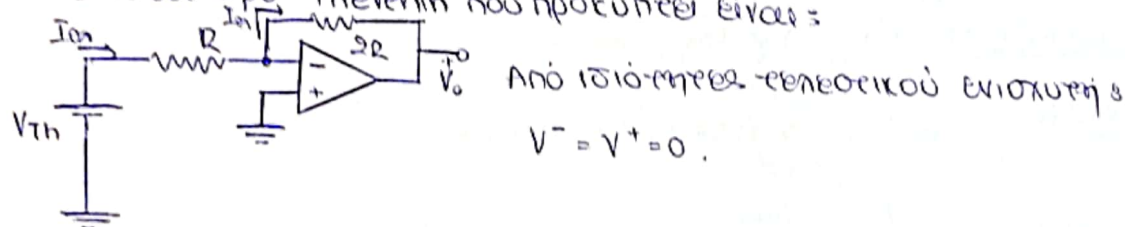 Thevenin που προκύπτει είναι:
Iin
Iin
R
2R
-
+
Vo
VTh
Από ιδιότητες τελεστικού ενισχυτή:
V⁻ = V⁺ = 0.